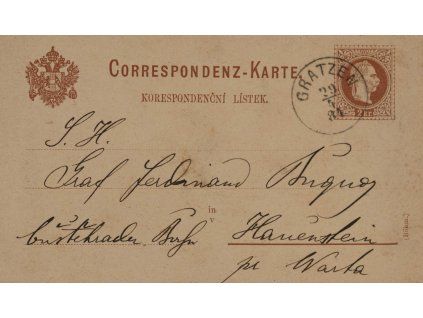 CORRESPONDENZ-KARTE
KORESPONDENČNÍ LÍSTEK.
GRATZEN
29
84
2 kr.
S. H.
Graf Ferdinand Buquoy
in
v
Buštěhrader Bahn
Hauenstein
pr Warta